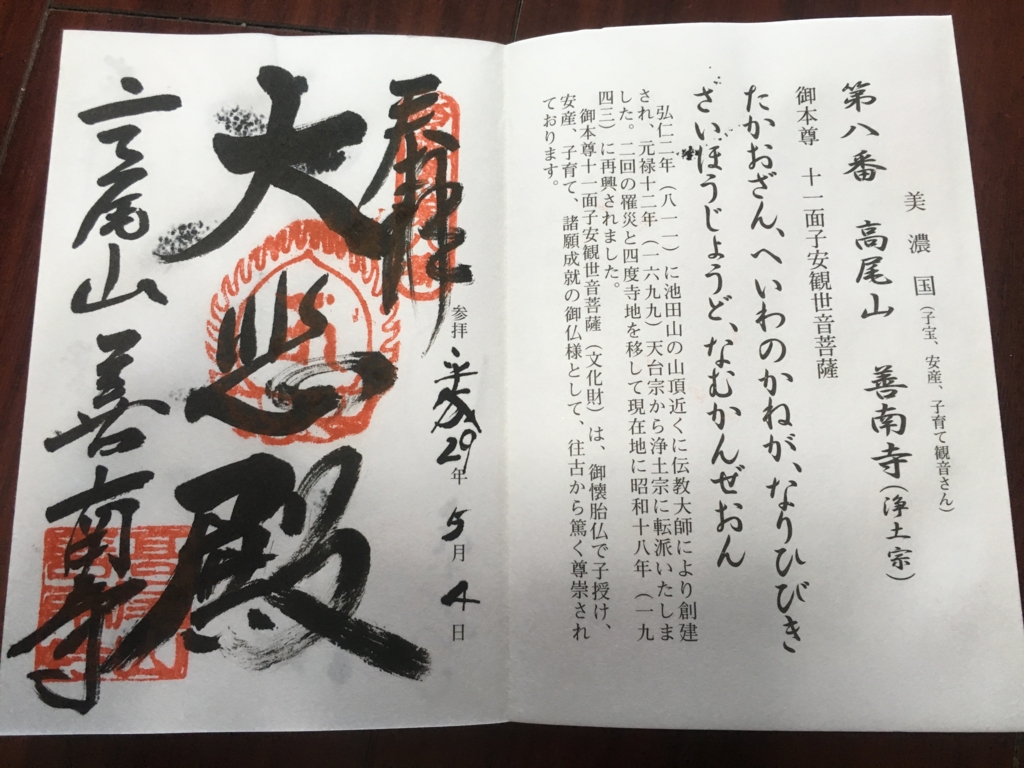 美濃国(子宝、安産、子育て観音さん)
第八番 高尾山 善南寺(浄土宗)
御本尊 十一面子安観世音菩薩
たかおざん、へいわのかねが、なりひびき
ざいほうじょうど、なむかんぜおん
弘仁二年(八一一)に池田山の山頂近くに伝教大師により創建
され、元禄十二年(一六九九)天台宗から浄土宗に転派いたしま
した。二回の罹災と四度寺地を移して現在地に昭和十八年(一九
四三)に再興されました。
御本尊十一面子安観世音菩薩(文化財)は、御懐胎仏で子授け、
安産、子育て、諸願成就の御仏様として、往古から篤く尊崇され
ております。
奉拝
参拝 平成29年5月4日
大悲殿
高尾山善南寺